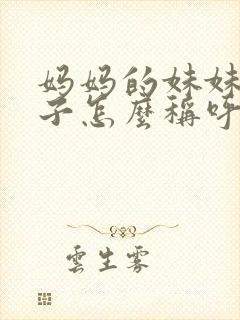 妈妈的妹妹
子怎麼稱呼
雲生雾